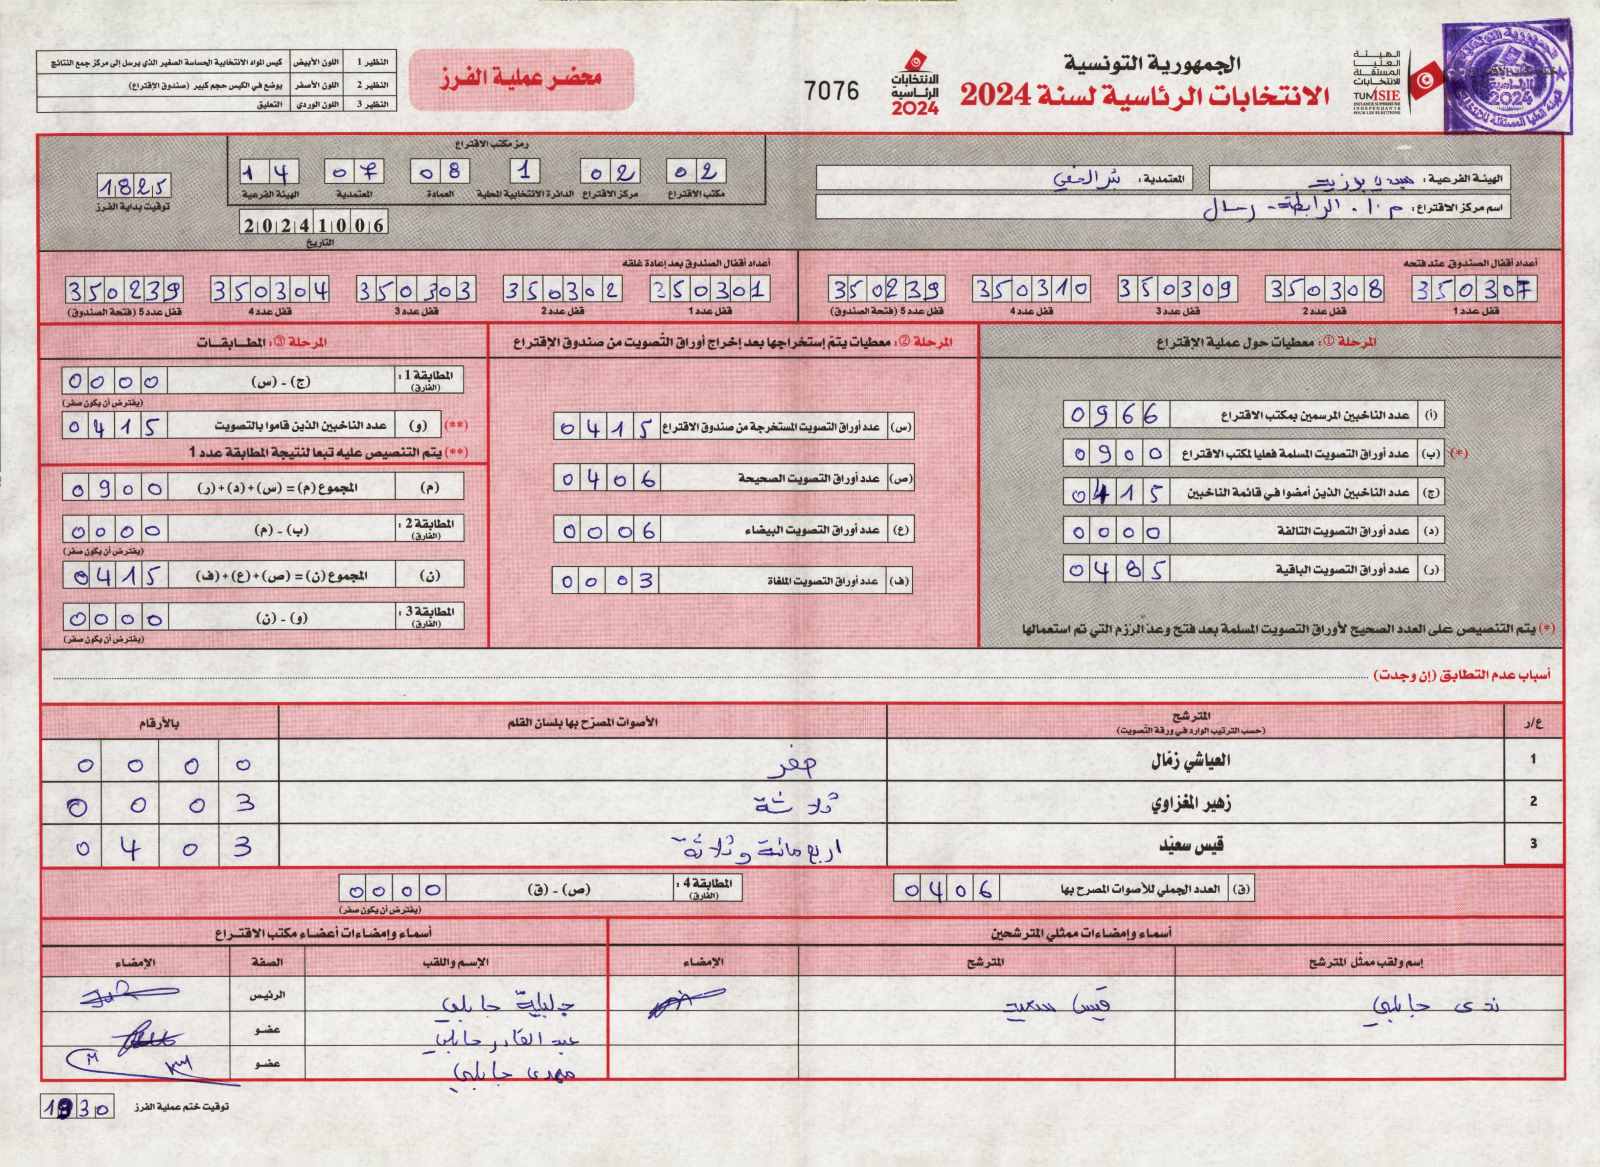 الهيئة العليا المستقلة للانتخابات
TUNISIE
INSTANCE SUPERIEURE INDEPENDANTE POUR LES ELECTIONS
الجمهورية التونسية
الانتخابات الرئاسية لسنة 2024
الانتخابات الرئاسية 2024
7076
محضر عملية الفرز
النظير 1 اللون الأبيض كيس المواد الانتخابية الحساسة الصغير الذي يرسل إلى مركز جمع النتائج
النظير 2 اللون الأصفر يوضع في الكيس حجم كبير (صندوق الاقتراع)
النظير 3 اللون الوردي التعليق
الهيئة الفرعية: سيدي بوزيد
المعتمدية:
اسم مركز الاقتراع: م.ا. الرابطة - رسال
رمز مكتب الاقتراع
02 02 1 08 07 14
مكتب الاقتراع مركز الاقتراع الدائرة الانتخابية المحلية العمادة المعتمدية الهيئة الفرعية
20241006
التاريخ
1825
توقيت بداية الفرز
أعداد أقفال الصندوق عند فتحه
350307 350308 350309 350310 350239
قفل عدد 1 قفل عدد 2 قفل عدد 3 قفل عدد 4 قفل عدد 5 (فتحة الصندوق)
أعداد أقفال الصندوق بعد إعادة غلقه
350301 350302 350303 350304 350239
قفل عدد 1 قفل عدد 2 قفل عدد 3 قفل عدد 4 قفل عدد 5 (فتحة الصندوق)
المرحلة ①: معطيات حول عملية الاقتراع
(أ) عدد الناخبين المرسمين بمكتب الاقتراع 0966
(*) (ب) عدد أوراق التصويت المسلمة فعليا لمكتب الاقتراع 0900
(ج) عدد الناخبين الذين أمضوا في قائمة الناخبين 0415
(د) عدد أوراق التصويت التالفة 0000
(ر) عدد أوراق التصويت الباقية 0485
(*) يتم التنصيص على العدد الصحيح لأوراق التصويت المسلمة بعد فتح وعدّ الرزم التي تم استعمالها
المرحلة ②: معطيات يتمّ إستخراجها بعد إخراج أوراق التّصويت من صندوق الإقتراع
(س) عدد أوراق التصويت المستخرجة من صندوق الاقتراع 0415
(ص) عدد أوراق التصويت الصحيحة 0406
(ع) عدد أوراق التصويت البيضاء 0006
(ف) عدد أوراق التصويت الملغاة 0003
المرحلة ③: المطـابقـات
المطابقة 1: (الفارق) (ج) - (س) 0000
(يفترض أن يكون صفر)
(**) (و) عدد الناخبين الذين قاموا بالتصويت 0415
(**) يتم التنصيص عليه تبعا لنتيجة المطابقة عدد 1
(م) المجموع (م) = (س)+(د)+(ر) 0900
المطابقة 2: (الفارق) (ب) - (م) 0000
(يفترض أن يكون صفر)
(ن) المجموع (ن) = (ص)+(ع)+(ف) 0415
المطابقة 3: (الفارق) (و) - (ن) 0000
(يفترض أن يكون صفر)
أسباب عدم التطابق (إن وجدت)
ع/ر المترشح (حسب الترتيب الوارد في ورقة التصويت) الأصوات المصرّح بها بلسان القلم بالأرقام
1 العياشي زمّال صفر 0000
2 زهير المغزاوي ثلاثة 0003
3 قيس سعيّد اربع مائة وثلاثة 0403
(ق) العدد الجملي للأصوات المصرح بها 0406
المطابقة 4: (الفارق) (ص) - (ق) 0000
(يفترض أن يكون صفر)
أسماء وإمضاءات ممثلي المترشحين
إسم ولقب ممثّل المترشح المترشح الإمضاء
ندى جابلي قيس سعيد
أسماء وإمضاءات أعضاء مكتب الاقتراع
الإسم واللقب الصفة الإمضاء
جليلة جابلي الرئيس
عبد القادر جابلي عضو
مهدي جابلي عضو
توقيت ختم عملية الفرز 1930